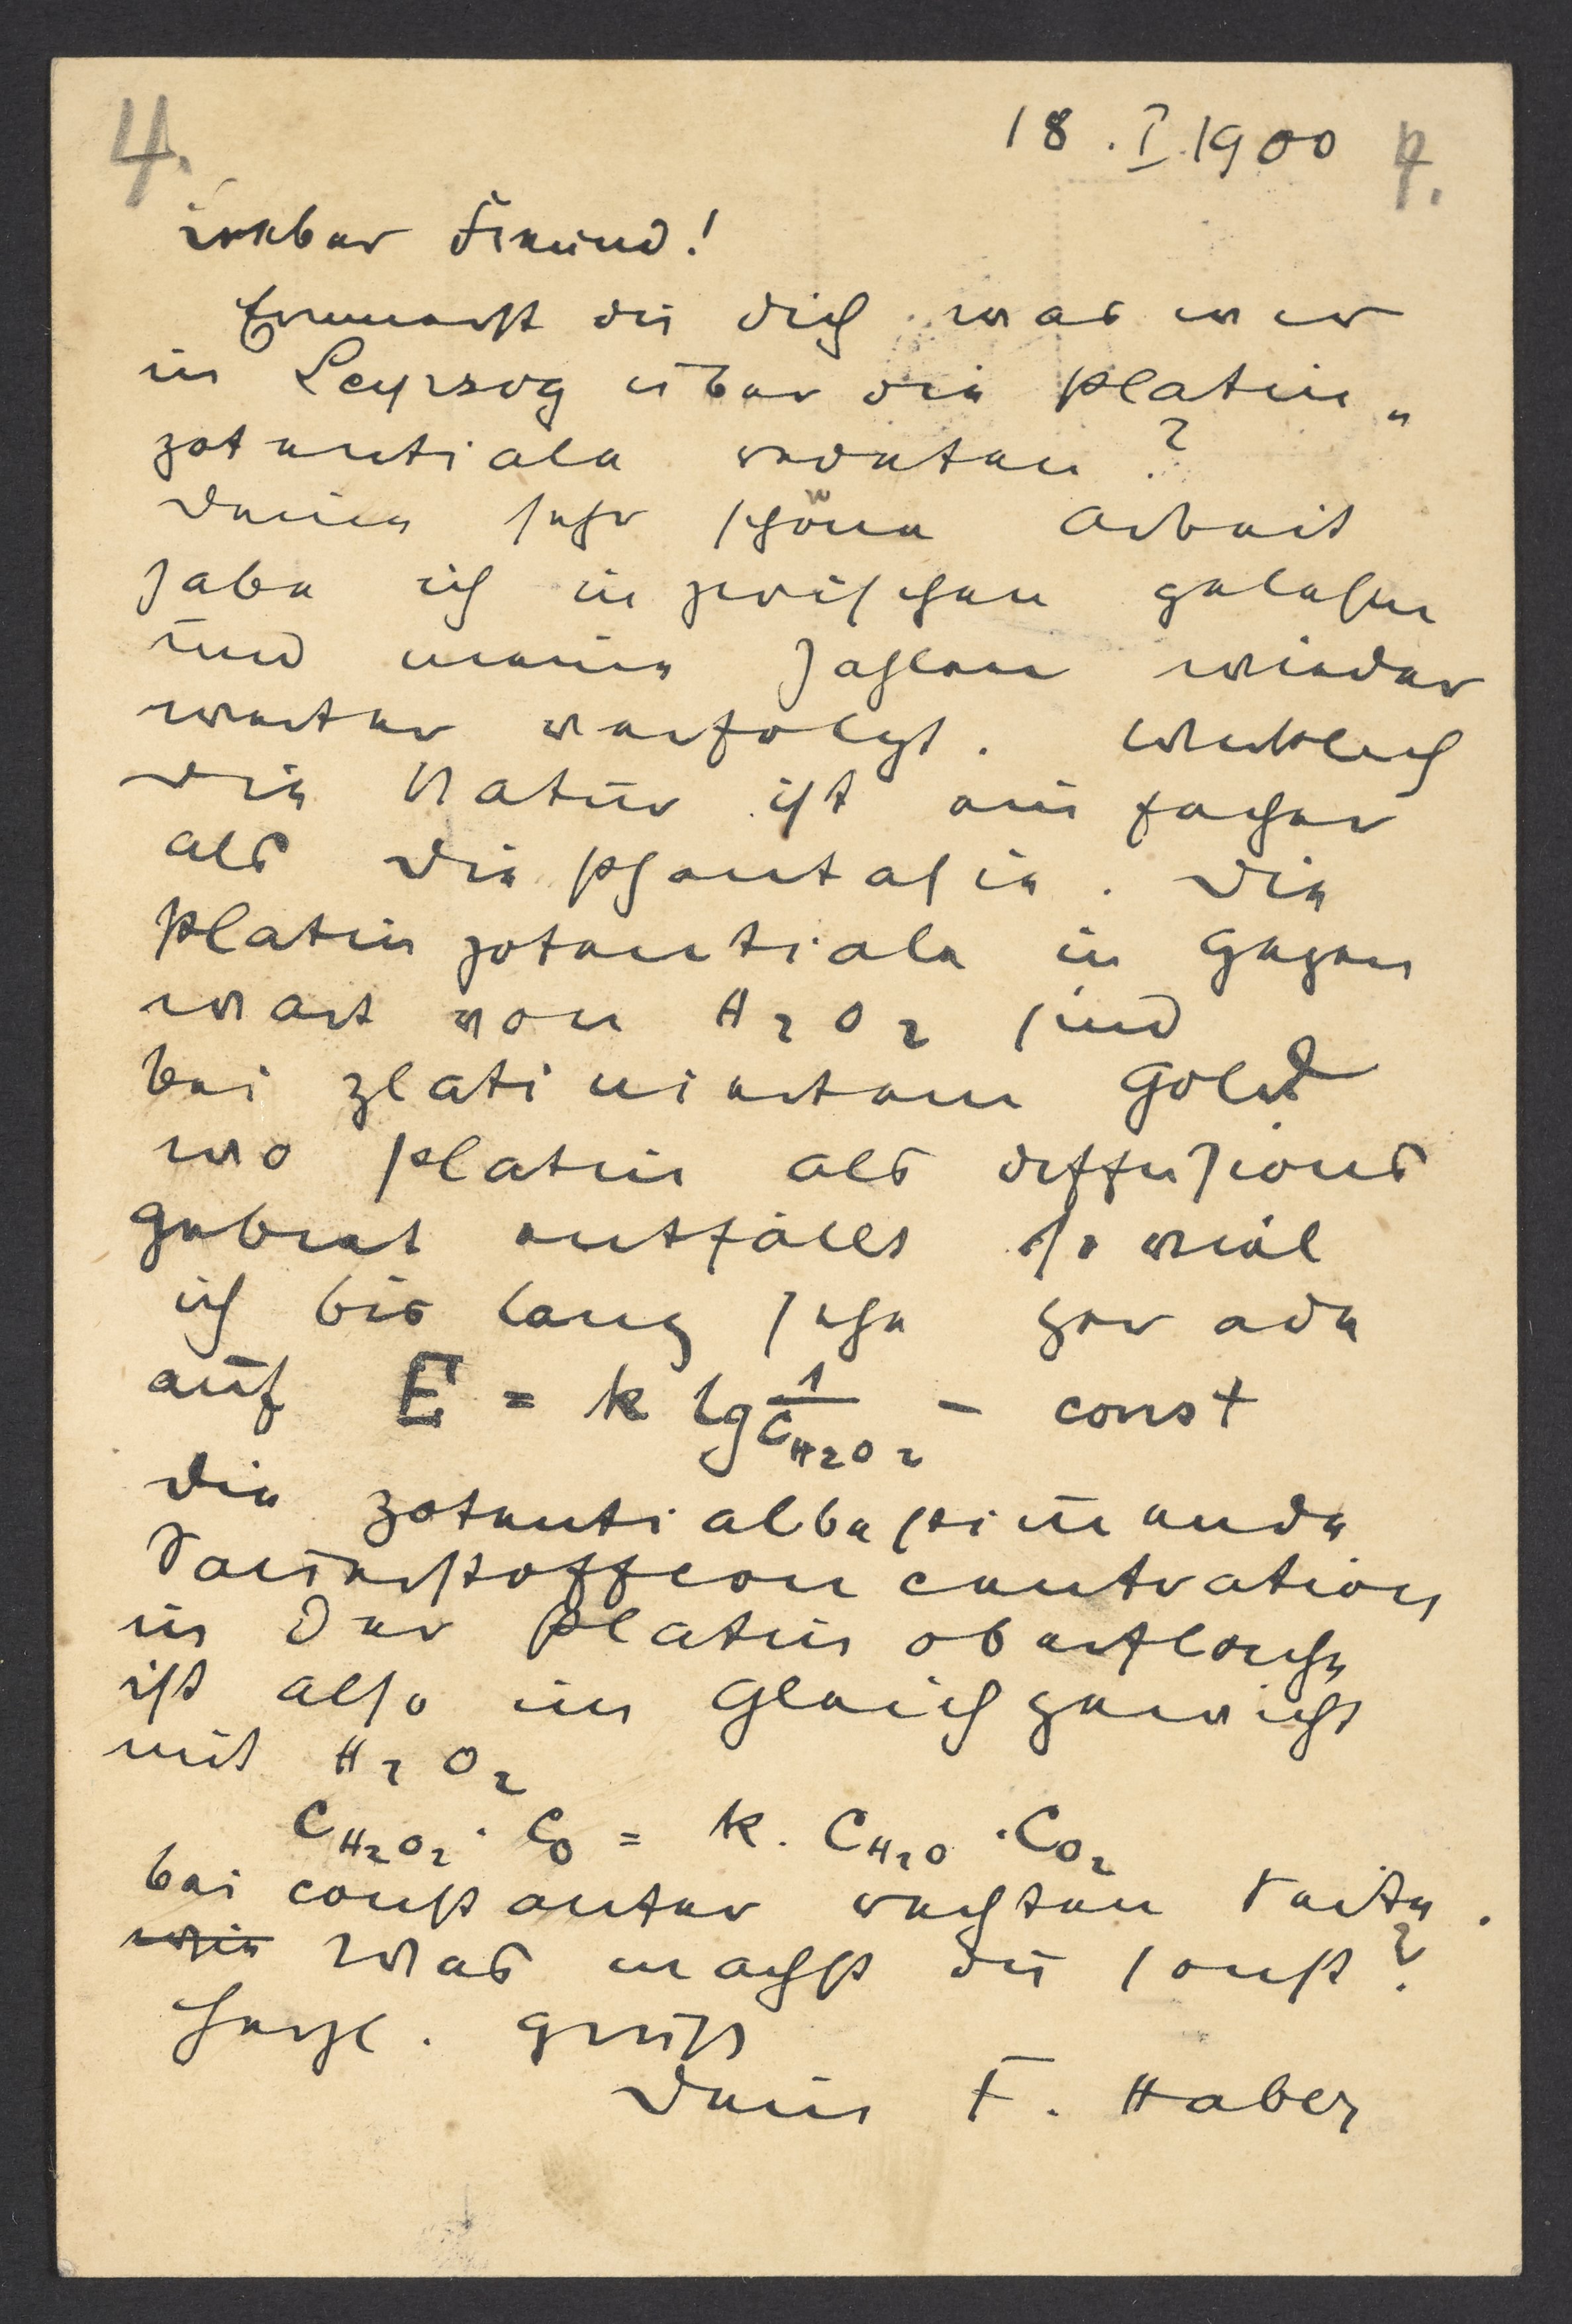 4. 18. I. 1900 4.
Lieber Freund!
Erinnerst du dich was wir
in Leipzig über die Platin„
potentiale redeten?
Deine sehr schöne Arbeit
habe ich inzwischen gelesen
und meine Sachen wieder
weiter verfolgt. Wirklich
die Natur ist einfacher
als die Phantasie. Die
Platinpotentiale in Gegen
wart von H2O2 sind
bei platiniertem Gold
wo Platin als Diffusions
gebiet entfällt so viel
ich bislang sehe gerade
auf E = k lg 1/C_H2O2 - const
die potentialbestimmende
Sauerstoffconcentration
in der Platinoberfläche
ist also im Gleichgewicht
mit H2O2
C_H2O2 · C_O = k · C_H2O · C_O2
bei constanter rechten Seite.
wie Was machst du sonst?
Herzl. Gruß
Dein F. Haber